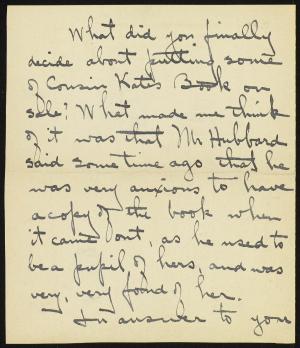 What did you finally
decide about putting some
of Cousin Kate's Book on
sale? What made me think
of it was that Mr Hubbard
said some time ago that he
was very anxious to have
a copy of the book when
it came out, as he used to
be a pupil of hers, and was
very, very fond of her.
In answer to your